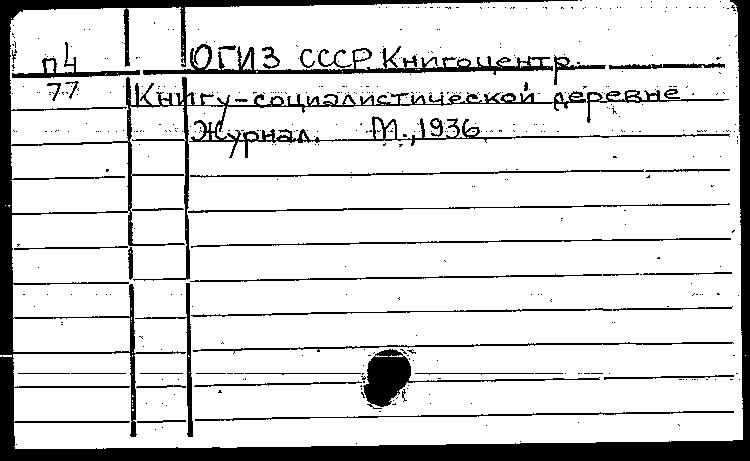 п4 ОГИЗ СССР Книгоцентр.
77 Книгу-социалистической деревне
Журнал. М.,1936